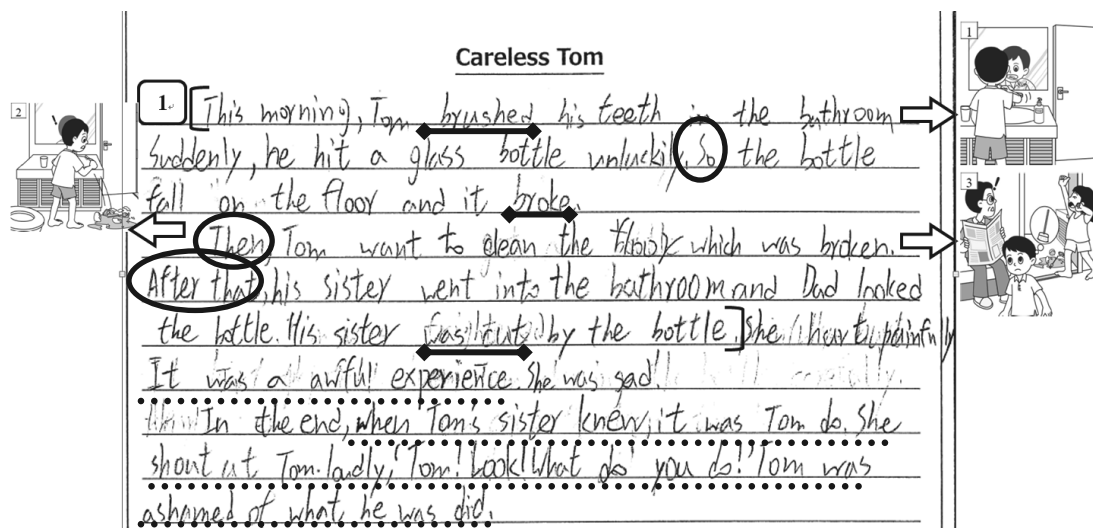 Careless Tom
1
This morning, Tom brushed his teeth in the bathroom
Suddenly, he hit a glass bottle unluckily. So the bottle
fall on the floor and it broke.
Then, Tom want to clean the which was broken.
After that, his sister went into the bathroom and Dad looked
the bottle. His sister was cut by the bottle. She heart painfully
It was a awful experience. She was sad.
In the end, when Tom's sister knew, it was Tom do. She
shout at Tom loudly, "Tom! Look! What do you do!" Tom was
ashamed of what he was did.
2
1
3